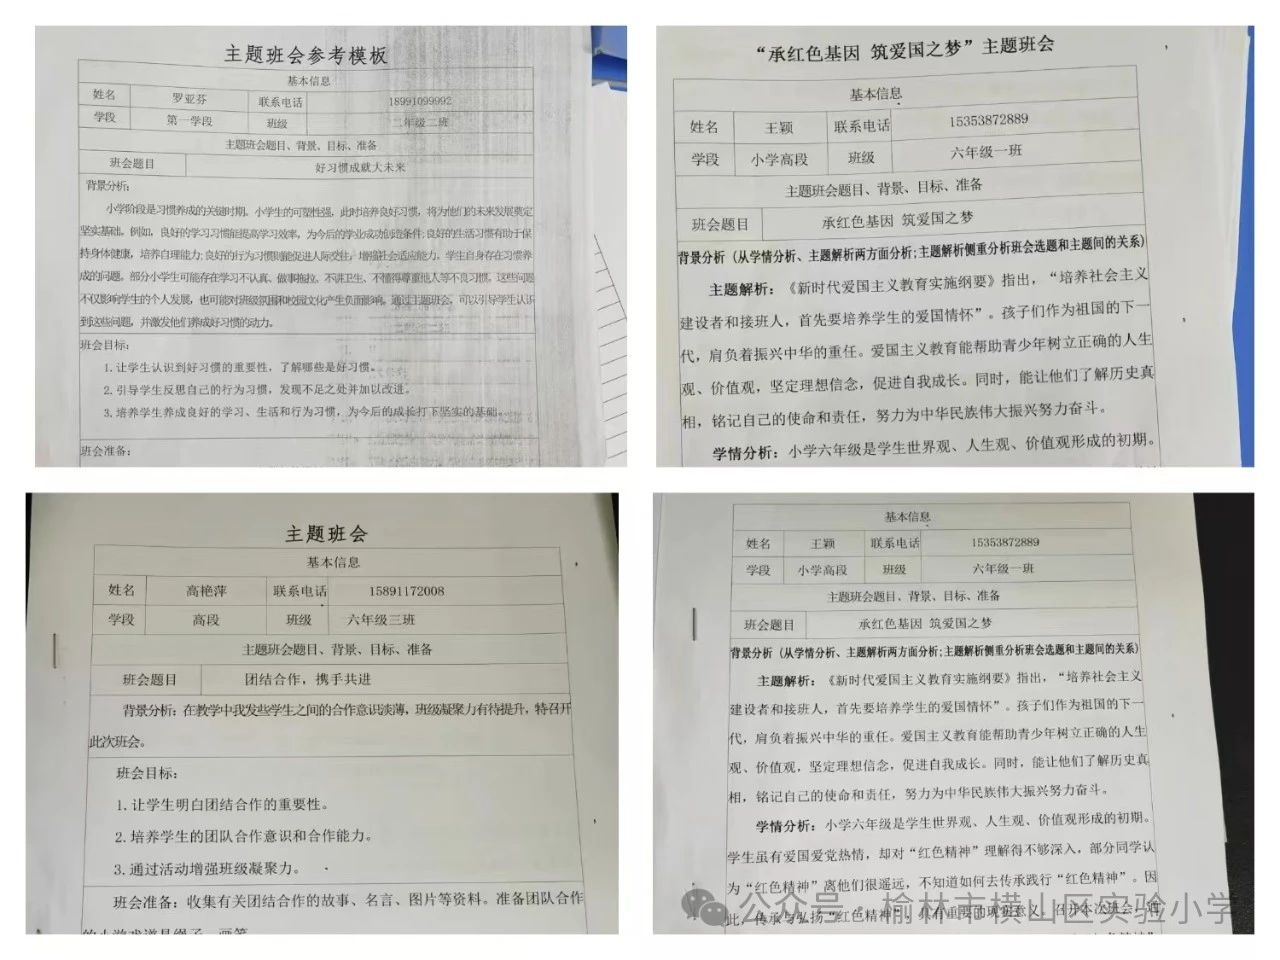 主题班会参考模板
基本信息
姓名 罗亚芬 联系电话 18991099992
学段 第一学段 班级 二年级二班
主题班会题目、背景、目标、准备
班会题目 好习惯成就大未来
背景分析:
小学阶段是习惯养成的关键时期。小学生的可塑性强，此时培养良好习惯，将为他们的未来发展奠定
坚实基础。例如，良好的学习习惯能提高学习效率，为今后的学业成功创造条件;良好的生活习惯有助于保
持身体健康，培养自理能力;良好的行为习惯则能促进人际交往，增强社会适应能力。学生自身存在习惯养
成的问题。部分小学生可能存在学习不认真、做事拖拉、不讲卫生、不懂得尊重他人等不良习惯，这些问题
不仅影响学生的个人发展，也可能对班级氛围和校园文化产生负面影响。通过主题班会，可以引导学生认识
到这些问题，并激发他们养成好习惯的动力。
班会目标:
1.让学生认识到好习惯的重要性，了解哪些是好习惯。
2.引导学生反思自己的行为习惯，发现不足之处并加以改进。
3.培养学生养成良好的学习、生活和行为习惯，为今后的成长打下坚实的基础。
班会准备:
“承红色基因 筑爱国之梦”主题班会
基本信息
姓名 王颖 联系电话 15353872889
学段 小学高段 班级 六年级一班
主题班会题目、背景、目标、准备
班会题目 承红色基因 筑爱国之梦
背景分析（从学情分析、主题解析两方面分析;主题解析侧重分析班会选题和主题间的关系）
主题解析：《新时代爱国主义教育实施纲要》指出，“培养社会主义
建设者和接班人，首先要培养学生的爱国情怀”。孩子们作为祖国的下一
代，肩负着振兴中华的重任。爱国主义教育能帮助青少年树立正确的人生
观、价值观，坚定理想信念，促进自我成长。同时，能让他们了解历史真
相，铭记自己的使命和责任，努力为中华民族伟大振兴努力奋斗。
学情分析：小学六年级是学生世界观、人生观、价值观形成的初期。
主题班会
基本信息
姓名 高艳萍 联系电话 15891172008
学段 高段 班级 六年级三班
主题班会题目、背景、目标、准备
班会题目 团结合作，携手共进
背景分析:在教学中我发些学生之间的合作意识淡薄，班级凝聚力有待提升，特召开
此次班会。
班会目标:
1.让学生明白团结合作的重要性。
2.培养学生的团队合作意识和合作能力。
3.通过活动增强班级凝聚力。
班会准备:收集有关团结合作的故事、名言、图片等资料。准备团队合作
基本信息
姓名 王颖 联系电话 15353872889
学段 小学高段 班级 六年级一班
主题班会题目、背景、目标、准备
班会题目 承红色基因 筑爱国之梦
背景分析（从学情分析、主题解析两方面分析;主题解析侧重分析班会选题和主题间的关系）
主题解析：《新时代爱国主义教育实施纲要》指出，“培养社会主义
建设者和接班人，首先要培养学生的爱国情怀”。孩子们作为祖国的下一
代，肩负着振兴中华的重任。爱国主义教育能帮助青少年树立正确的人生
观、价值观，坚定理想信念，促进自我成长。同时，能让他们了解历史真
相，铭记自己的使命和责任，努力为中华民族伟大振兴努力奋斗。
学情分析：小学六年级是学生世界观、人生观、价值观形成的初期。
学生虽有爱国爱党热情，却对“红色精神”理解得不够深入，部分同学认
为“红色精神”离他们很遥远，不知道如何去传承践行“红色精神”。因
此，传承与弘扬“红色精神”，具有重要的现实意义，召开本次班会
公众号 · 榆林市横山区实验小学